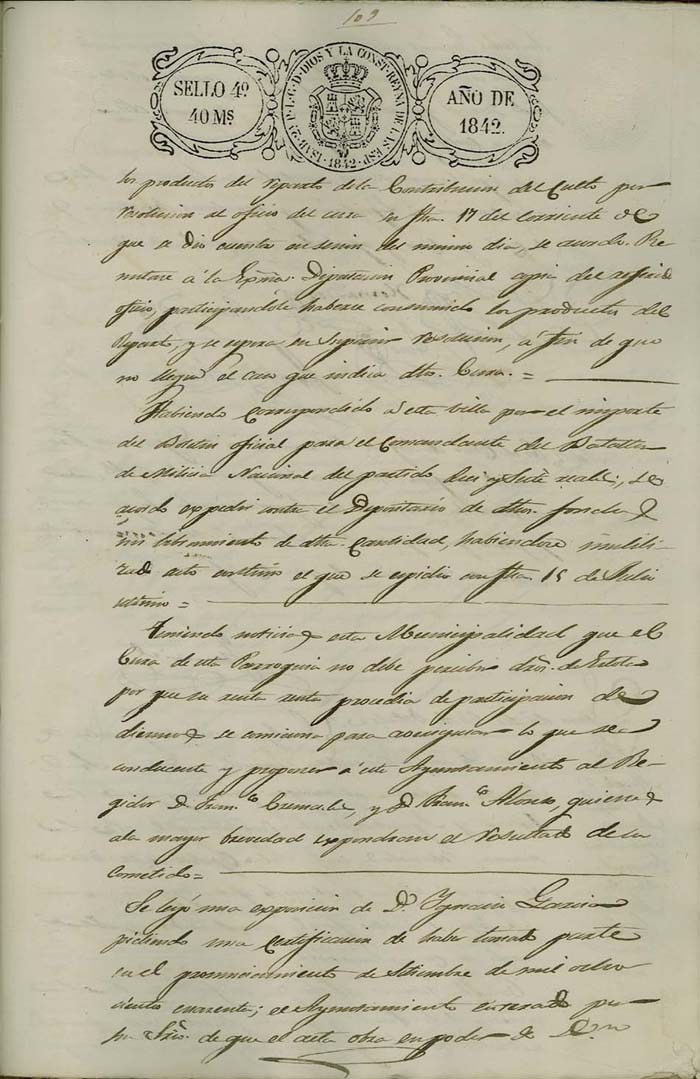 109
SELLO 4º
40 Ms
ISAB. 2ª P. L. G. D. DIOS Y LA CONST. REYNA DE LAS ESP. 1842
AÑO DE
1842.
los productos del reparto de la Contribucion del Culto por
resolucion al oficio del cura su fha. 17 del corriente de
que se dio cuenta en sesion del mismo dia, se acordo Re-
mitase á la Exma. Diputacion Provincial copia del referido
oficio, participandole haberse consumido los productos del
Reparto, y se espera su Superior resolucion, á fin de que
no llegue el caso que indica dho. Cura. =
Habiendo correspondido á esta villa por el importe
del Boletin oficial para el Comandante del Batallon
de Milicia Nacional del partido diez y siete reales, se
acordo expedir contra el Depositario de dhos. fondos
un libramiento de dha. Cantidad, habiendose inutili-
zado el que se espidio con fha. 15 de Julio
ultimo =
Teniendo noticia esta Municipalidad que el
Cura de esta Parroquia no debe percibir dros. de Estola
por que su renta procedia de participacion de
diezmos se comisiona para averiguar lo que sea
conducente y proponer á este Ayuntamiento al Re-
gidor D. Franco. y D. Franco. Alonso, quienes
a la mayor brevedad expondran el resultado de su
Cometido =
Se leyó una exposicion de D. Ignacio Garcia
pidiendo una certificacion de haber tomado parte
en el pronunciamiento de Setiembre de mil ocho
ciento cuarenta; el Ayuntamiento enterado por
su Srio. de que el acta obra en poder de D.